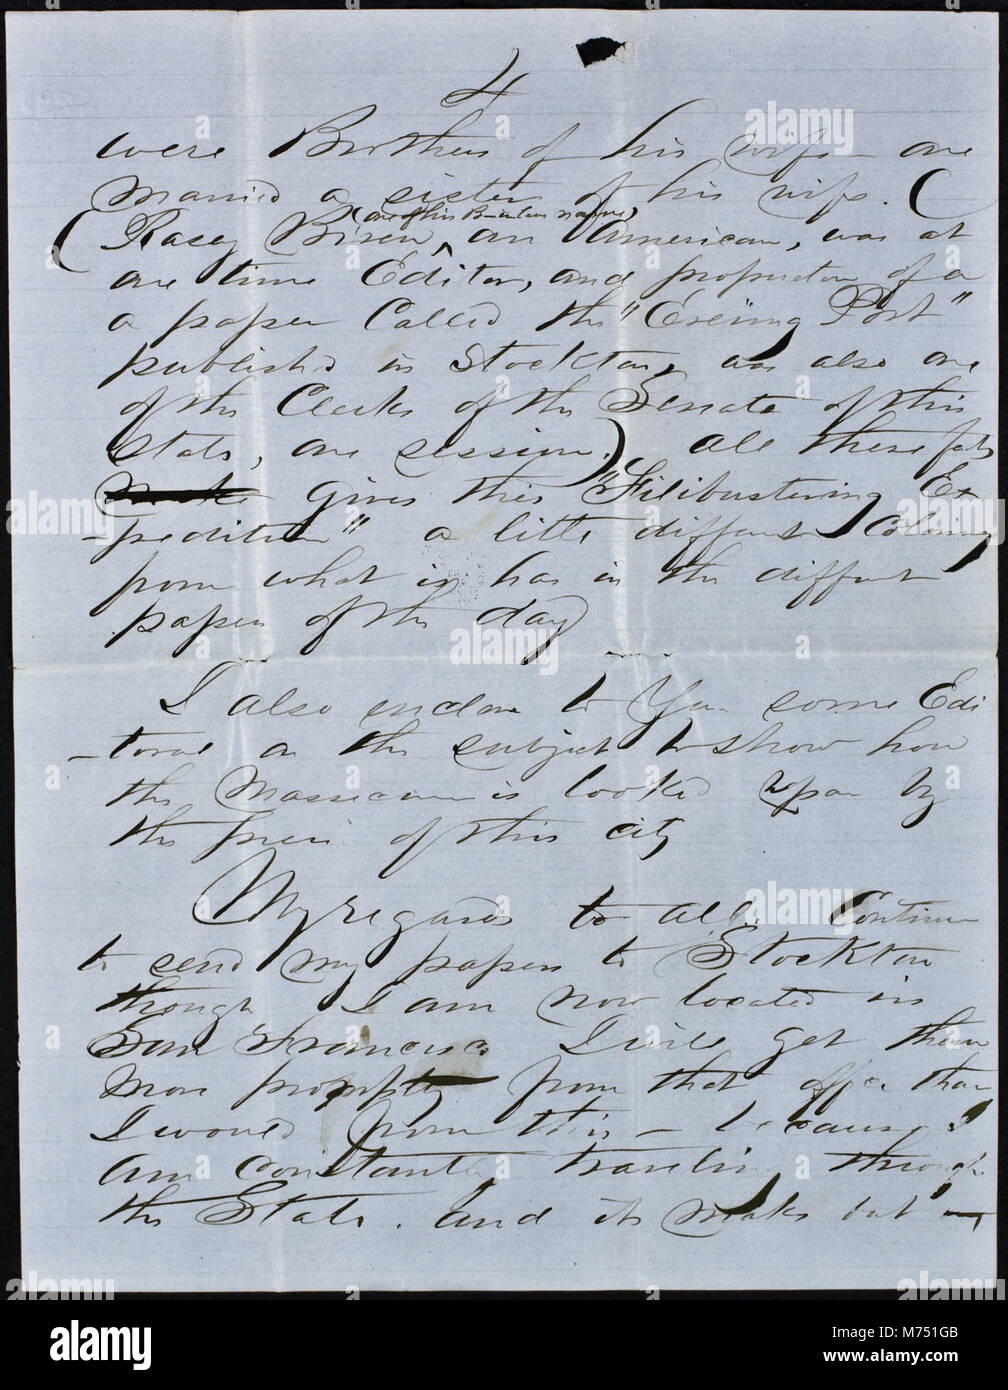 4
were Brothers of his wife one
married a sister of his wife. (
(one of his Brother in laws names)
(Rasey Biven, an American, was at
one time Editor, and proprietor of a
a paper Called the "Evening Post"
published in Stockton, was also one
of the Clerks of the Senate of this
State, one session.) all these facts
Make gives this "Filibustering Ex
-pedition" a little different Coloring
from what is has in the different
papers of the day
I also enclose to You some Edi
-torial on the subject to show how
the Massacre is looked upon by
the press of this city
My regards to all. Continue
to send my papers to Stockton
though I am now located in
San Francisco I will get them
more promptly from that office than
I would from this – because I
am constantly traveling through
the State. and it makes but
alamy
Image ID: M751GB
www.alamy.com